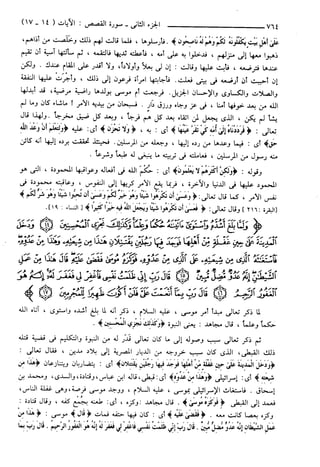 ٧٦٤ الجزء الثاني - سورة القصص: الآيات (١٤ - ١٧)
عَلَىٰ أَهْلِ بَيْتٍ يَكْفُلُونَهُ لَكُمْ وَهُمْ لَهُ نَاصِحُونَ ﴾. فأرسلوها ، فلما قالت لهم ذلك وخلصت من أذاهم،
ذهبوا معها إلى منزلهم ، فدخلوا به على أمه ، فأعطته ثديها فالتقمه ،
ثم سألتها آسية أن تقيم عندها فترضعه ، فأبت عليها وقالت : إن لي بعلاً وأولاداً، ولا أقدر على المقام عندك . ولكن
إن أحببت أن أرضعه في بيتي فعلت. فأجابتها امرأة فرعون إلى ذلك ، وأجرت عليها النفقة
والصلات والكساوي والإحسان الجزيل. فرجعت أم موسى بولدها راضية مرضية، قد أبدلها
الله من بعد خوفها أمنا ، في عز وجاه ورزق دار .
فسبحان من بيديه الأمر ! ماشاء كان وما لم
يشأ لم يكن ، الذي يجعل لمن اتقاه بعد كل هم فرجاً ، وبعد كل ضيق مخرجاً . ولهذا قال
تعالى : ﴿ فَرَدَدْنَاهُ إِلَىٰ أُمِّهِ كَيْ تَقَرَّ عَيْنُهَا ﴾ أي : به ، ﴿ وَلَا تَحْزَنَ ﴾ أي : عليه ﴿ وَلِتَعْلَمَ أَنَّ وَعْدَ اللَّهِ
حَقٌّ ﴾ أي : فيما وعدها من رده إليها ، وجعله من المرسلين . فحينئذ تحققت برده إليها أنه كائن
منه رسول من المرسلين ، فعاملته في تربيته ما ينبغي له طبعاً وشرعاً .
وقوله : ﴿ وَلَٰكِنَّ أَكْثَرَهُمْ لَا يَعْلَمُونَ ﴾ أي : حكم الله في أفعاله وعواقبها المحمودة ، التي هو
المحمود عليها في الدنيا والآخرة ، فربما يقع الأمر كريها إلى النفوس ، وعاقبته محمودة في
نفس الأمر ، كما قال تعالى : ﴿ وَعَسَىٰ أَن تَكْرَهُوا شَيْئًا وَهُوَ خَيْرٌ لَّكُمْ وَعَسَىٰ أَن تُحِبُّوا شَيْئًا وَهُوَ شَرٌّ لَّكُمْ ﴾
[البقرة : ٢١٦] وقال تعالى : ﴿ فَعَسَىٰ أَن تَكْرَهُوا شَيْئًا وَيَجْعَلَ اللَّهُ فِيهِ خَيْرًا كَثِيرًا ﴾ [النساء : ١٩].
﴿ وَلَمَّا بَلَغَ أَشُدَّهُ وَاسْتَوَىٰ آتَيْنَاهُ حُكْمًا وَعِلْمًا وَكَذَٰلِكَ نَجْزِي الْمُحْسِنِينَ ﴾ ﴿ وَدَخَلَ
الْمَدِينَةَ عَلَىٰ حِينِ غَفْلَةٍ مِّنْ أَهْلِهَا فَوَجَدَ فِيهَا رَجُلَيْنِ يَقْتَتِلَانِ هَٰذَا مِن شِيعَتِهِ وَهَٰذَا مِنْ عَدُوِّهِ
فَاسْتَغَاثَهُ الَّذِي مِن شِيعَتِهِ عَلَى الَّذِي مِنْ عَدُوِّهِ فَوَكَزَهُ مُوسَىٰ فَقَضَىٰ عَلَيْهِ قَالَ هَٰذَا مِنْ عَمَلِ
الشَّيْطَانِ إِنَّهُ عَدُوٌّ مُّضِلٌّ مُّبِينٌ ﴾ ﴿ قَالَ رَبِّ إِنِّي ظَلَمْتُ نَفْسِي فَاغْفِرْ لِي فَغَفَرَ لَهُ إِنَّهُ هُوَ
الْغَفُورُ الرَّحِيمُ ﴾ ﴿ قَالَ رَبِّ بِمَا أَنْعَمْتَ عَلَيَّ فَلَنْ أَكُونَ ظَهِيرًا لِّلْمُجْرِمِينَ ﴾
لما ذكر تعالى مبدأ أمر موسى ، عليه السلام ، ذكر أنه لما بلغ أشده واستوى ، آتاه الله
حكماً وعلماً ، قال مجاهد : يعني النبوة ﴿ وَكَذَٰلِكَ نَجْزِي الْمُحْسِنِينَ ﴾ .
ثم ذكر تعالى سبب وصوله إلى ما كان تعالى قدر له من النبوة والتكليم في قضية قتله
ذلك القبطي، الذي كان سبب خروجه من الديار المصرية إلى بلاد مدين ، فقال تعالى :
﴿ وَدَخَلَ الْمَدِينَةَ عَلَىٰ حِينِ غَفْلَةٍ مِّنْ أَهْلِهَا
فَوَجَدَ فِيهَا رَجُلَيْنِ يَقْتَتِلَانِ ﴾ أي : يتضاربان ويتنازعان ﴿ هَٰذَا مِن
شِيعَتِهِ ﴾ أي : إسرائيلي ﴿ وَهَٰذَا مِنْ عَدُوِّهِ ﴾ أي: قبطي، قاله ابن عباس، وقتادة، والسدي، ومحمد بن
إسحاق . فاستغاث الإسرائيلي بموسى ، عليه السلام ، ووجد موسى فرصة، وهي غفلة الناس،
فعمد إلى القبطي ﴿ فَوَكَزَهُ مُوسَىٰ ﴾ . قال مجاهد : وكزه ، أي : طعنه بجمع كفه . وقال قتادة :
وكزه بعصا كانت معه . ﴿ فَقَضَىٰ عَلَيْهِ ﴾ أي : كان فيها حتفه فمات ﴿ قَالَ ﴾ موسى : ﴿ هَٰذَا مِنْ
عَمَلِ الشَّيْطَانِ إِنَّهُ عَدُوٌّ مُّضِلٌّ مُّبِينٌ . قَالَ رَبِّ إِنِّي ظَلَمْتُ نَفْسِي فَاغْفِرْ لِي فَغَفَرَ لَهُ إِنَّهُ هُوَ الْغَفُورُ الرَّحِيمُ . قَالَ